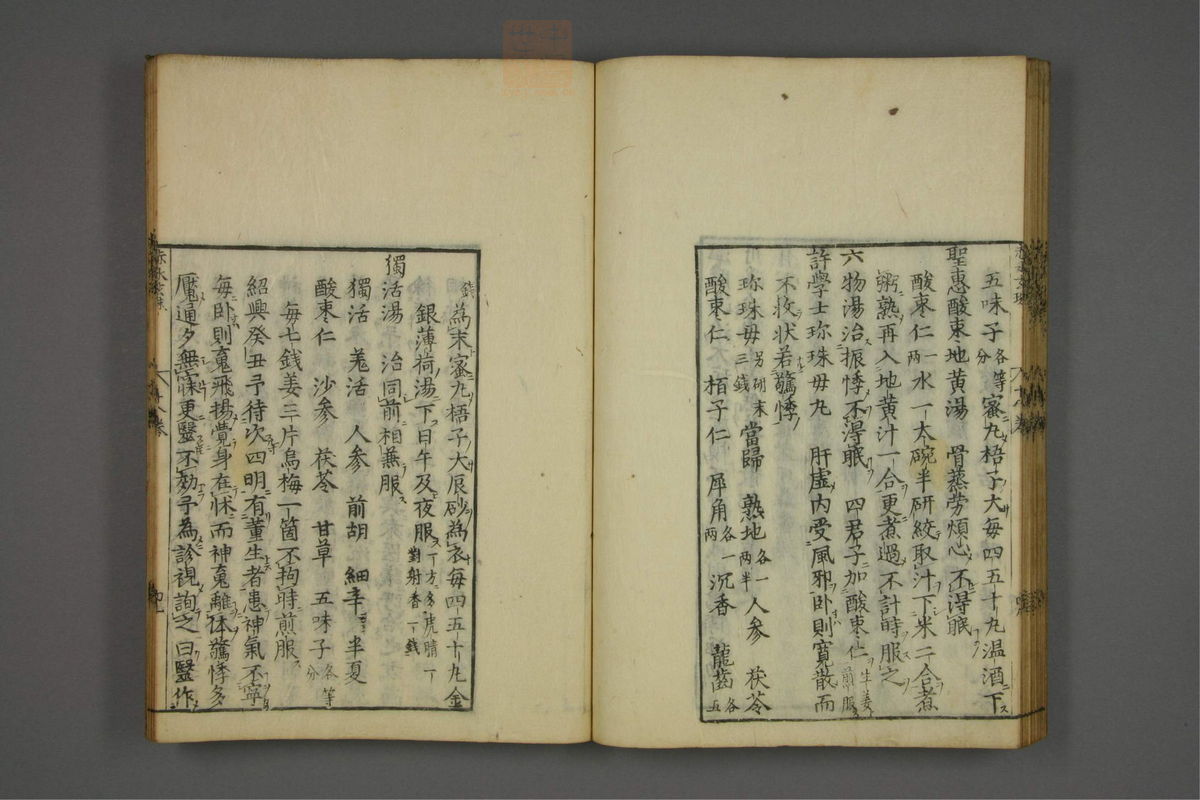 五味子各等分蜜丸梧子大每四五十丸温酒下
聖惠酸棗地黄湯 骨蒸労煩心不得眠
酸棗仁一两水一大碗半研絞取汁下米二合煮
粥熟再入地黄汁一合更煮過不計時服之
六物湯治振悸不得眠 四君子加酸棗仁生姜煎服
許學士珎珠母丸 肝虚内受風邪卧則寬散而
不收状若驚悸
珎珠母三錢另研末當歸 熟地各一两半人参 茯苓
酸棗仁 栢子仁 犀角各一两沉香 龍齒各五
錢為末蜜丸梧子大辰砂為衣每四五十丸金
銀薄荷湯下日午及夜服一方多虎睛一對射香一錢
獨活湯 治同前相兼服
獨活 羗活 人参 前胡 細辛 半夏
酸棗仁 沙参 茯苓 甘草 五味子各等分
每七錢姜三片烏梅一箇不拘時煎服
紹興癸丑予待次四明有董生者患神氣不寧
每卧則䰟飛揚覺身在床而神䰟離体驚悸多
魘通夕無寐更醫不効予為診視詢之曰醫作